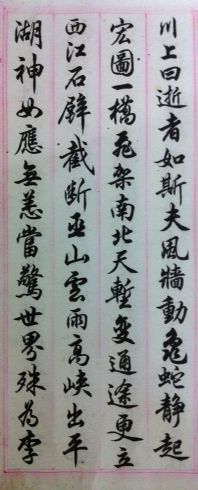 川上曰逝者如斯夫風牆動龜蛇静起
宏圖一橋飛架南北天塹变通途更立
西江石壁截断巫山雲雨高峡出平
湖神女應無恙當驚世界殊為李